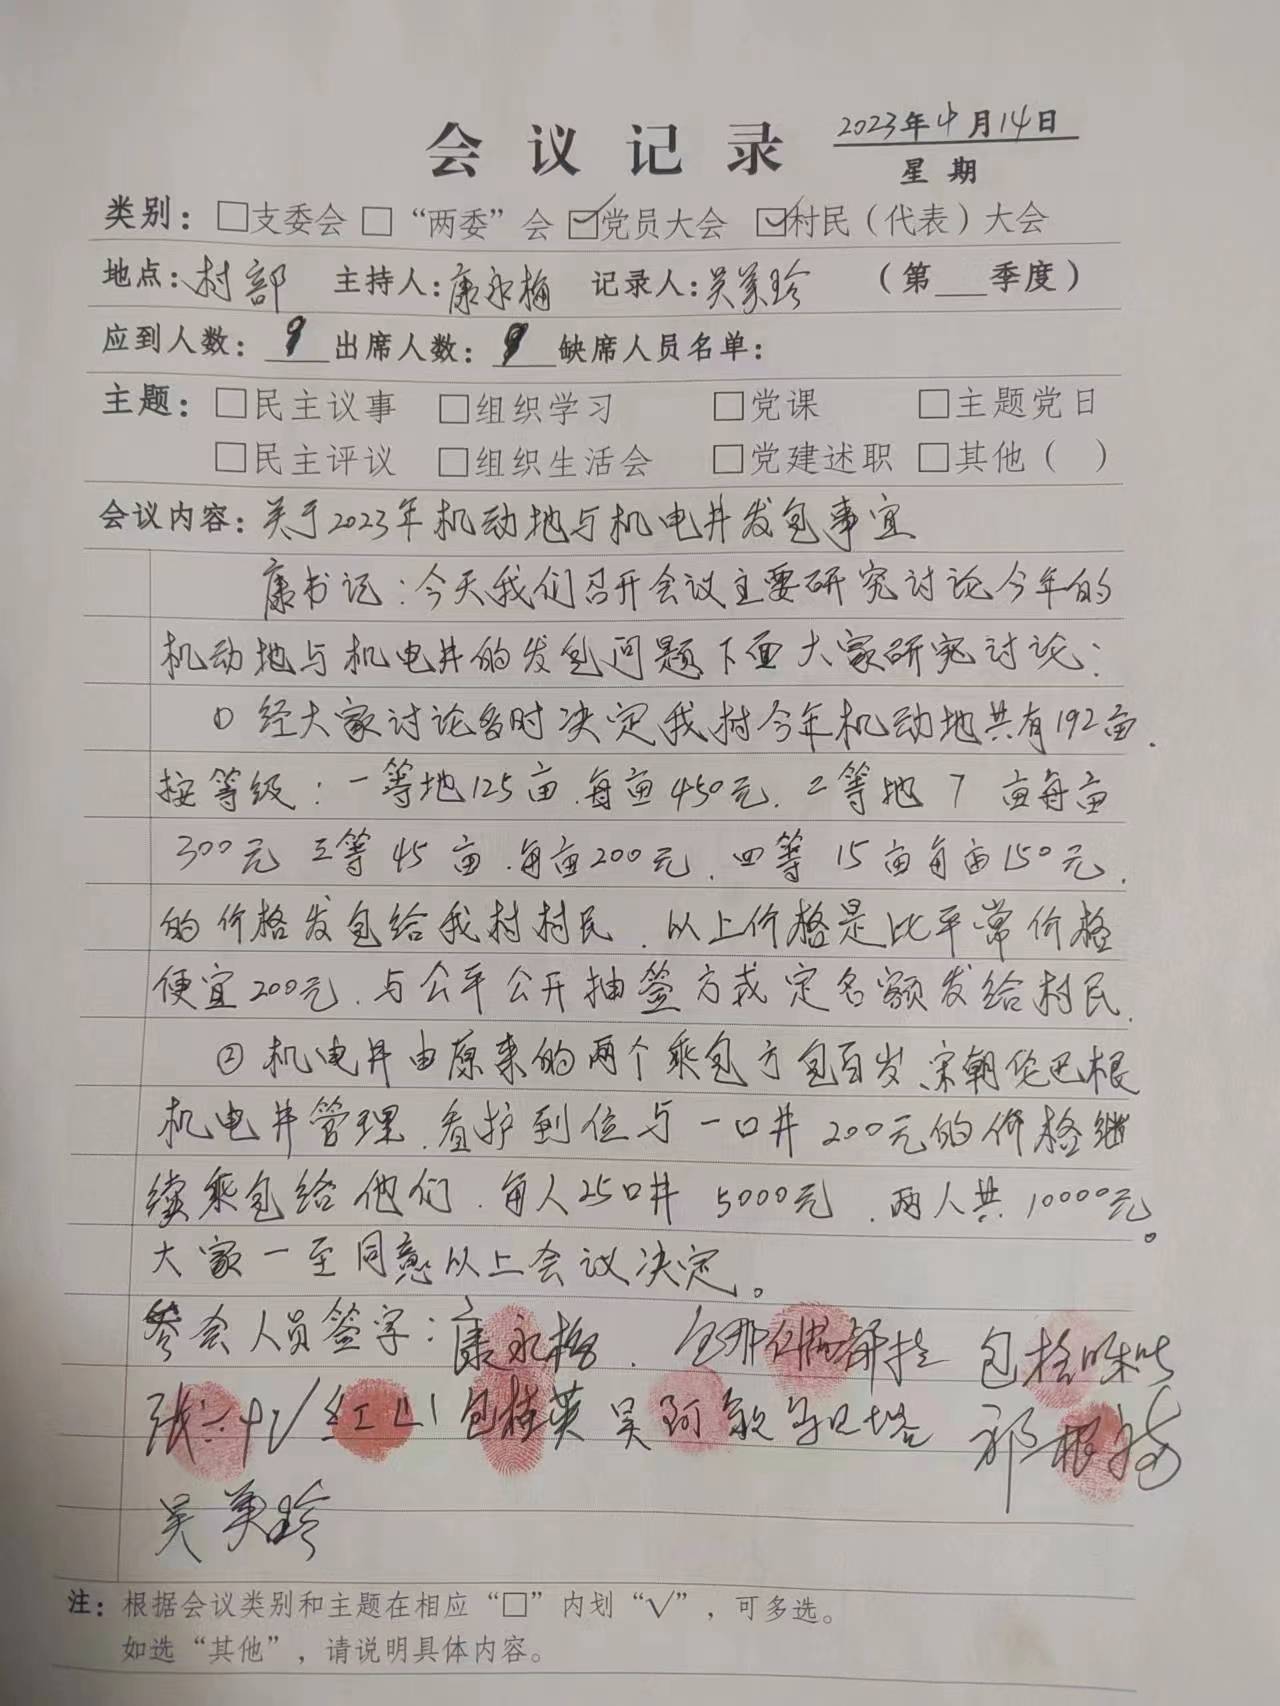 会议记录 2023年4月14日
星期
类别：□支委会 □“两委”会 ☑党员大会 ☑村民（代表）大会
地点：村部 主持人：康永梅 记录人：吴美玲 （第___季度）
应到人数：9 出席人数：9 缺席人员名单：
主题：□民主议事 □组织学习 □党课 □主题党日
□民主评议 □组织生活会 □党建述职 □其他（ ）
会议内容：关于2023年机动地与机电井发包事宜
康书记：今天我们召开会议主要研究讨论今年的
机动地与机电井的发包问题下面大家研究讨论：
① 经大家讨论多时决定我村今年机动地共有192亩.
按等级：一等地125亩.每亩450元.二等地7亩每亩
300元 三等45亩.每亩200元.四等15亩每亩150元.
的价格发包给我村村民.以上价格是比平常价格
便宜200元.与公平公开抽签方式定名额发给村民.
② 机电井由原来的两个乘包方包百岁、宋朝伦巴根
机电井管理.看护到位与一口井200元的价格继
续乘包给他们.每人25口井5000元.两人共10000元。
大家一至同意以上会议决定。
参会人员签字：康永梅.
红山 包桂英 吴阿敏 祁根梅
吴美玲
注：根据会议类别和主题在相应“□”内划“√”，可多选。
如选“其他”，请说明具体内容。